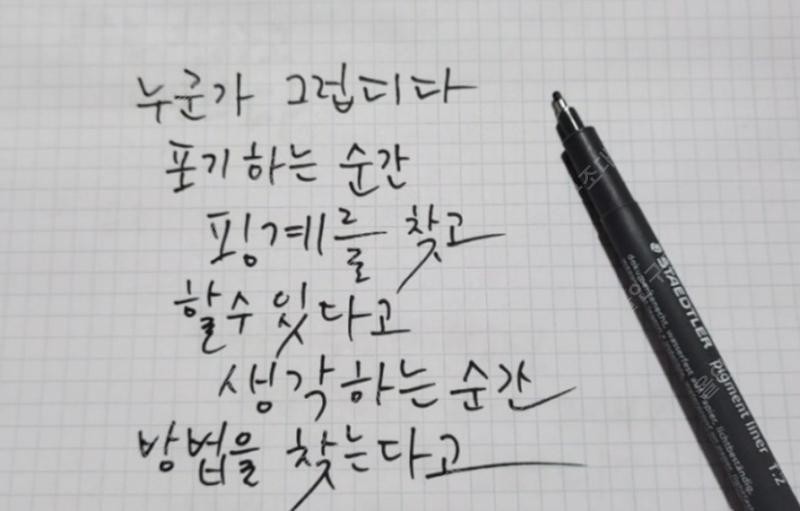 누군가 그럽디다
포기하는 순간
핑계를 찾고
할수 있다고
생각하는 순간
방법을 찾는다고
STAEDTLER
pigment liner 1.2